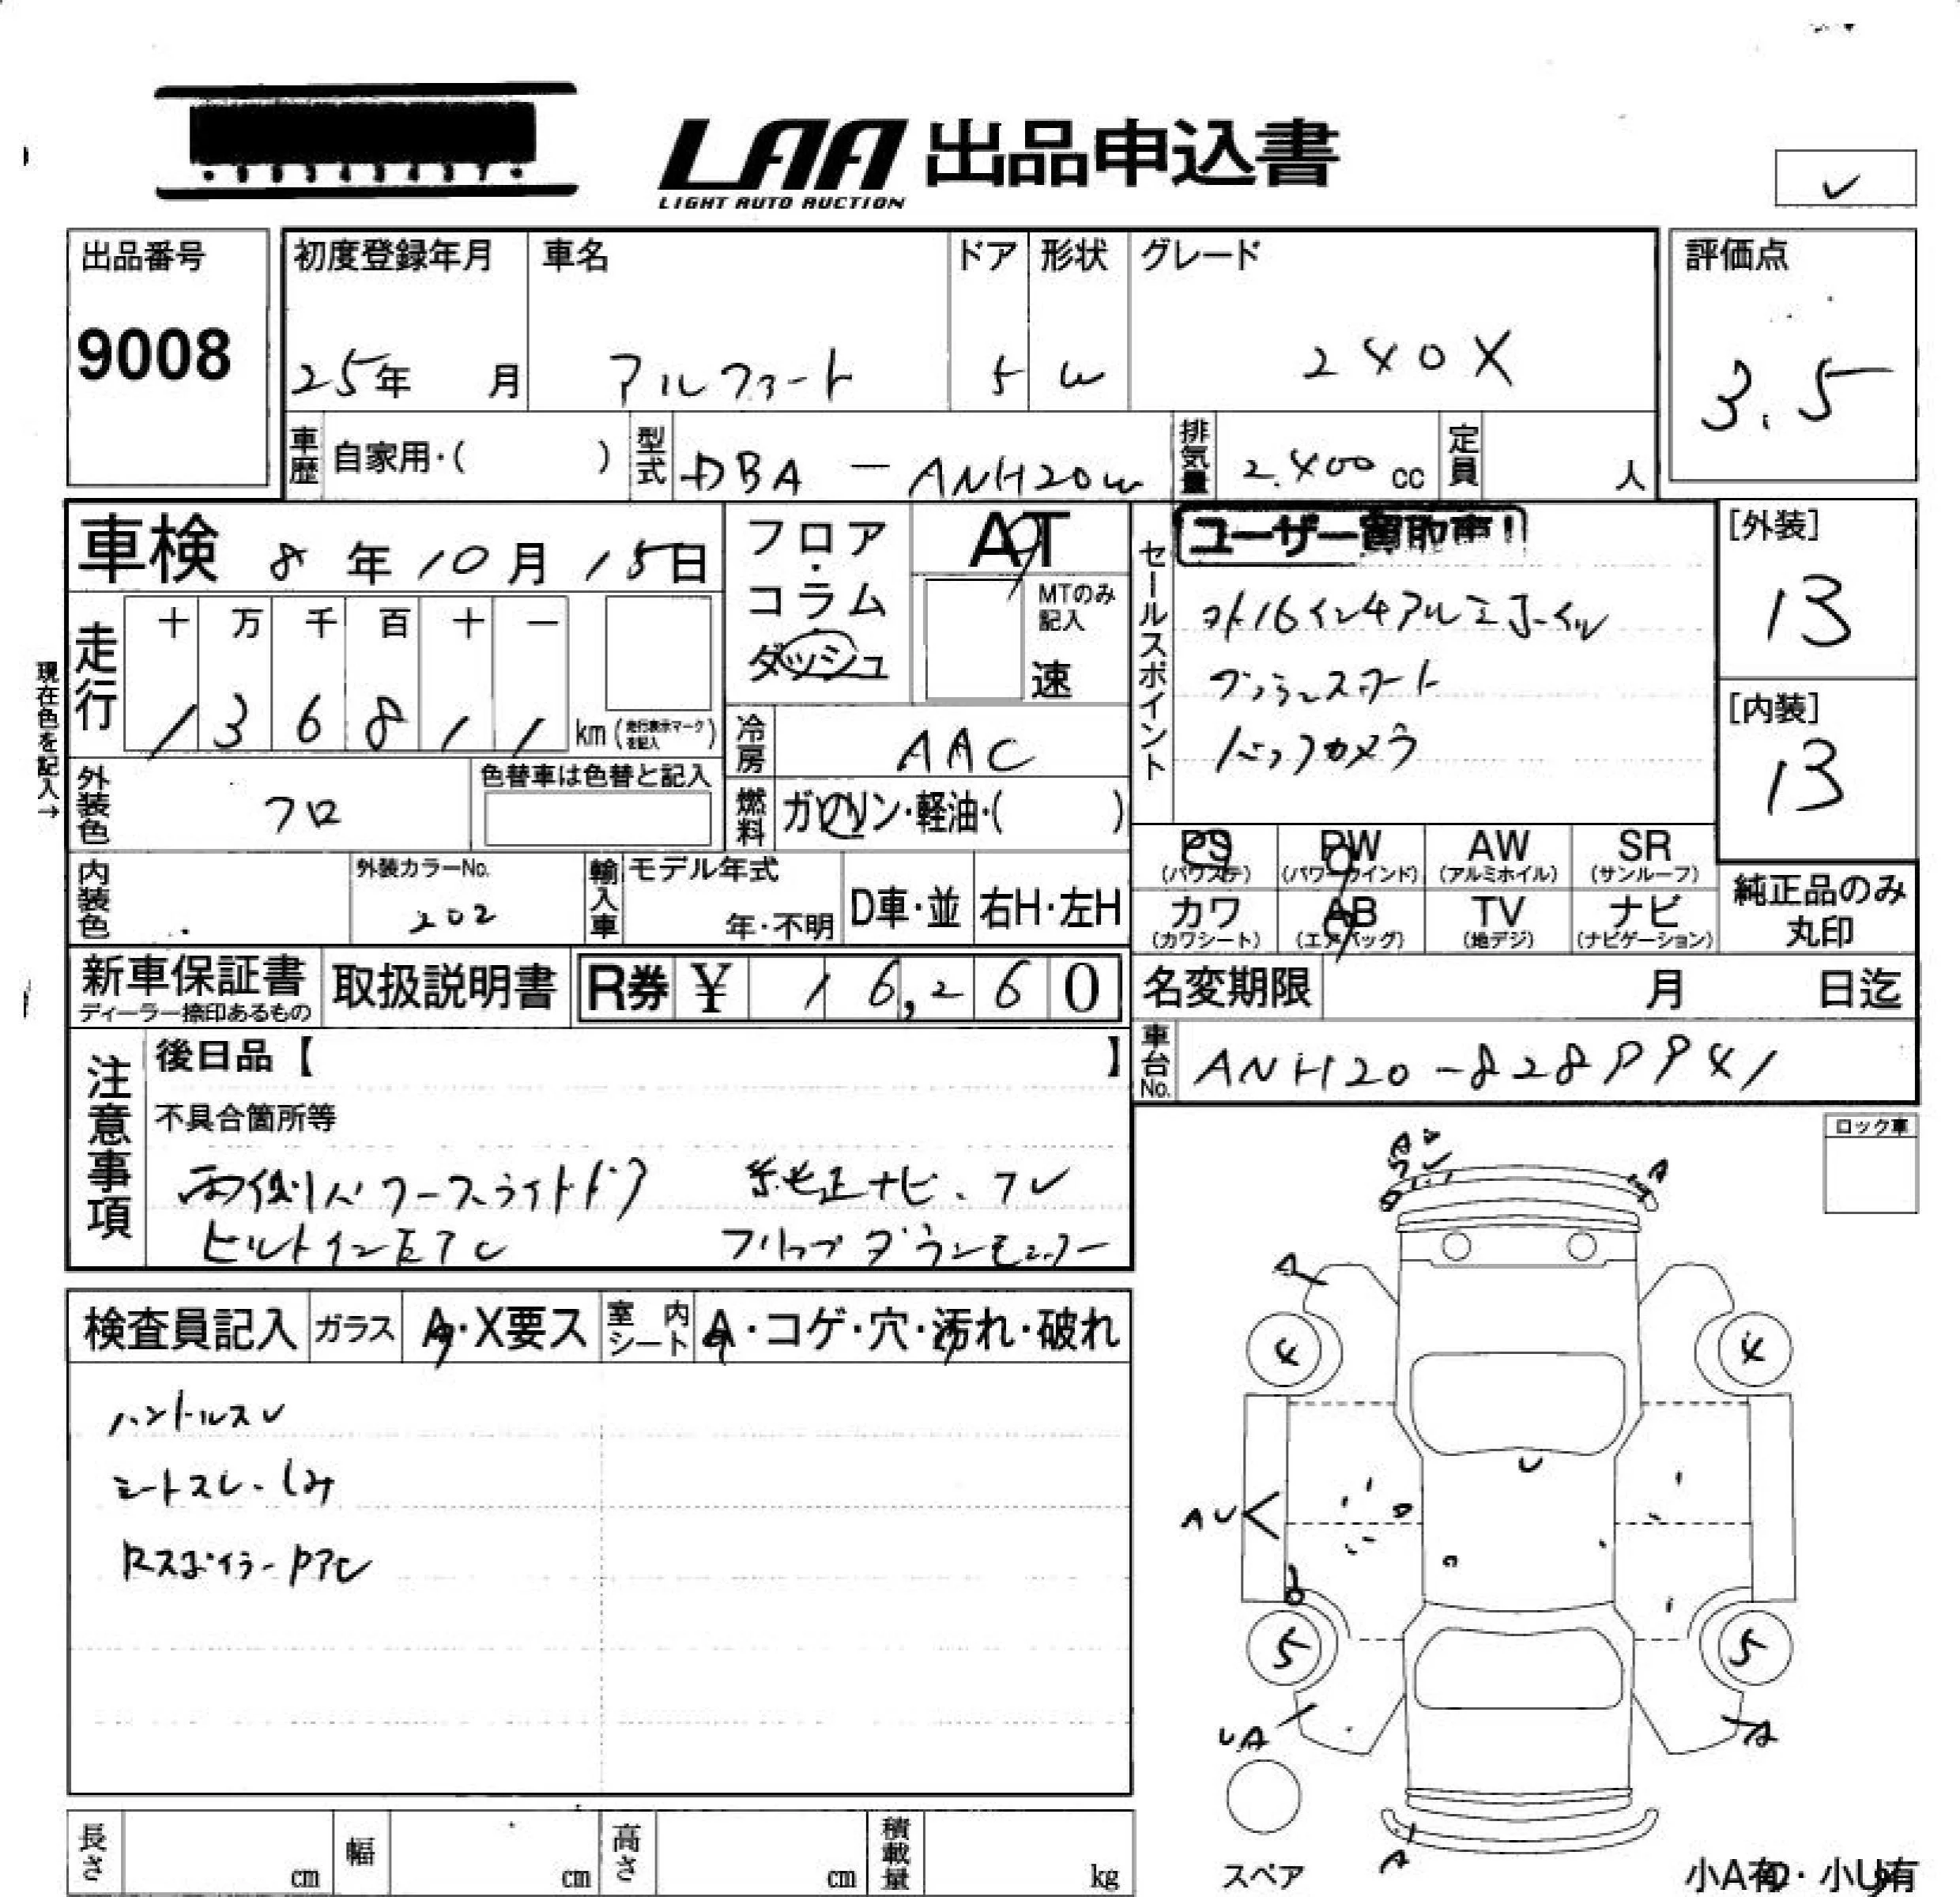 LAA 出品申込書
LIGHT AUTO AUCTION
出品番号
9008
初度登録年月
25年 月
車名
アルファード
ドア
5
形状
W
グレード
240X
評価点
3.5
車歴 自家用・( )
型式 DBA - ANH20W
排気量 2.400 cc
定員 人
車検 8年10月15日
フロア・コラム ダッシュ
AT
MTのみ記入
速
セールスポイント
ユーザー買取車!
16インチアルミホイル
プッシュスタート
バックカメラ
[外装]
13
[内装]
13
現在色を記入→
走行
十 万 千 百 十 一
1 3 6 8 1 1 km (走行表示マークを記入)
冷房 AAC
燃料 ガソリン・軽油・( )
外装色 クロ
色替車は色替と記入
内装色
外装カラーNo.
202
輸入車 モデル年式
年・不明
D車・並
右H・左H
PS (パワステ)
PW (パワーウインド)
AW (アルミホイル)
SR (サンルーフ)
カワ (カワシート)
AB (エアバッグ)
TV (地デジ)
ナビ (ナビゲーション)
純正品のみ丸印
新車保証書
ディーラー捺印あるもの
取扱説明書
R券 ¥ 16,260
名変期限 月 日迄
車台No. ANH20-8289941
注意事項
後日品【 】
不具合箇所等
両側パワースライドドア 純正ナビ、TV
ビルトインETC フリップダウンモニター
ロック車
検査員記入
ガラス A・X要ス
室内シート A・コゲ・穴・汚れ・破れ
ハンドルスレ
シートスレ・しみ
Rスポイラー
A
A
A
4
4
AU
5
5
UA
A
A
スペア
長さ cm
幅 cm
高さ cm
積載量 kg
小A有・小U有